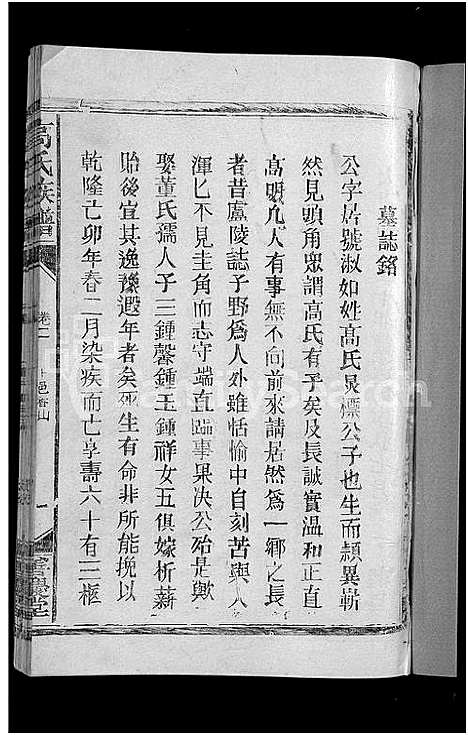 墓誌銘
公字居號淑如姓高氏炅標公子也生而頴異嶄
然見頭角眾謂高氏有子矣及長誠實温和正直
高明凢人有事無不向前來請居然為一鄉之長
者昔盧陵誌子野為人外雖恬愉中自刻苦與人
渾匕不見圭角而志守端直臨事果决公殆是歟
娶董氏孺人子三鍾馨鍾玉鍾祥女五俱嫁析薪
貽後宜其逸豫遐年者矣死生有命非所能挽以
乾隆亡卯年春二月染疾而亡享壽六十有三柩
高氏族譜
卷二
一